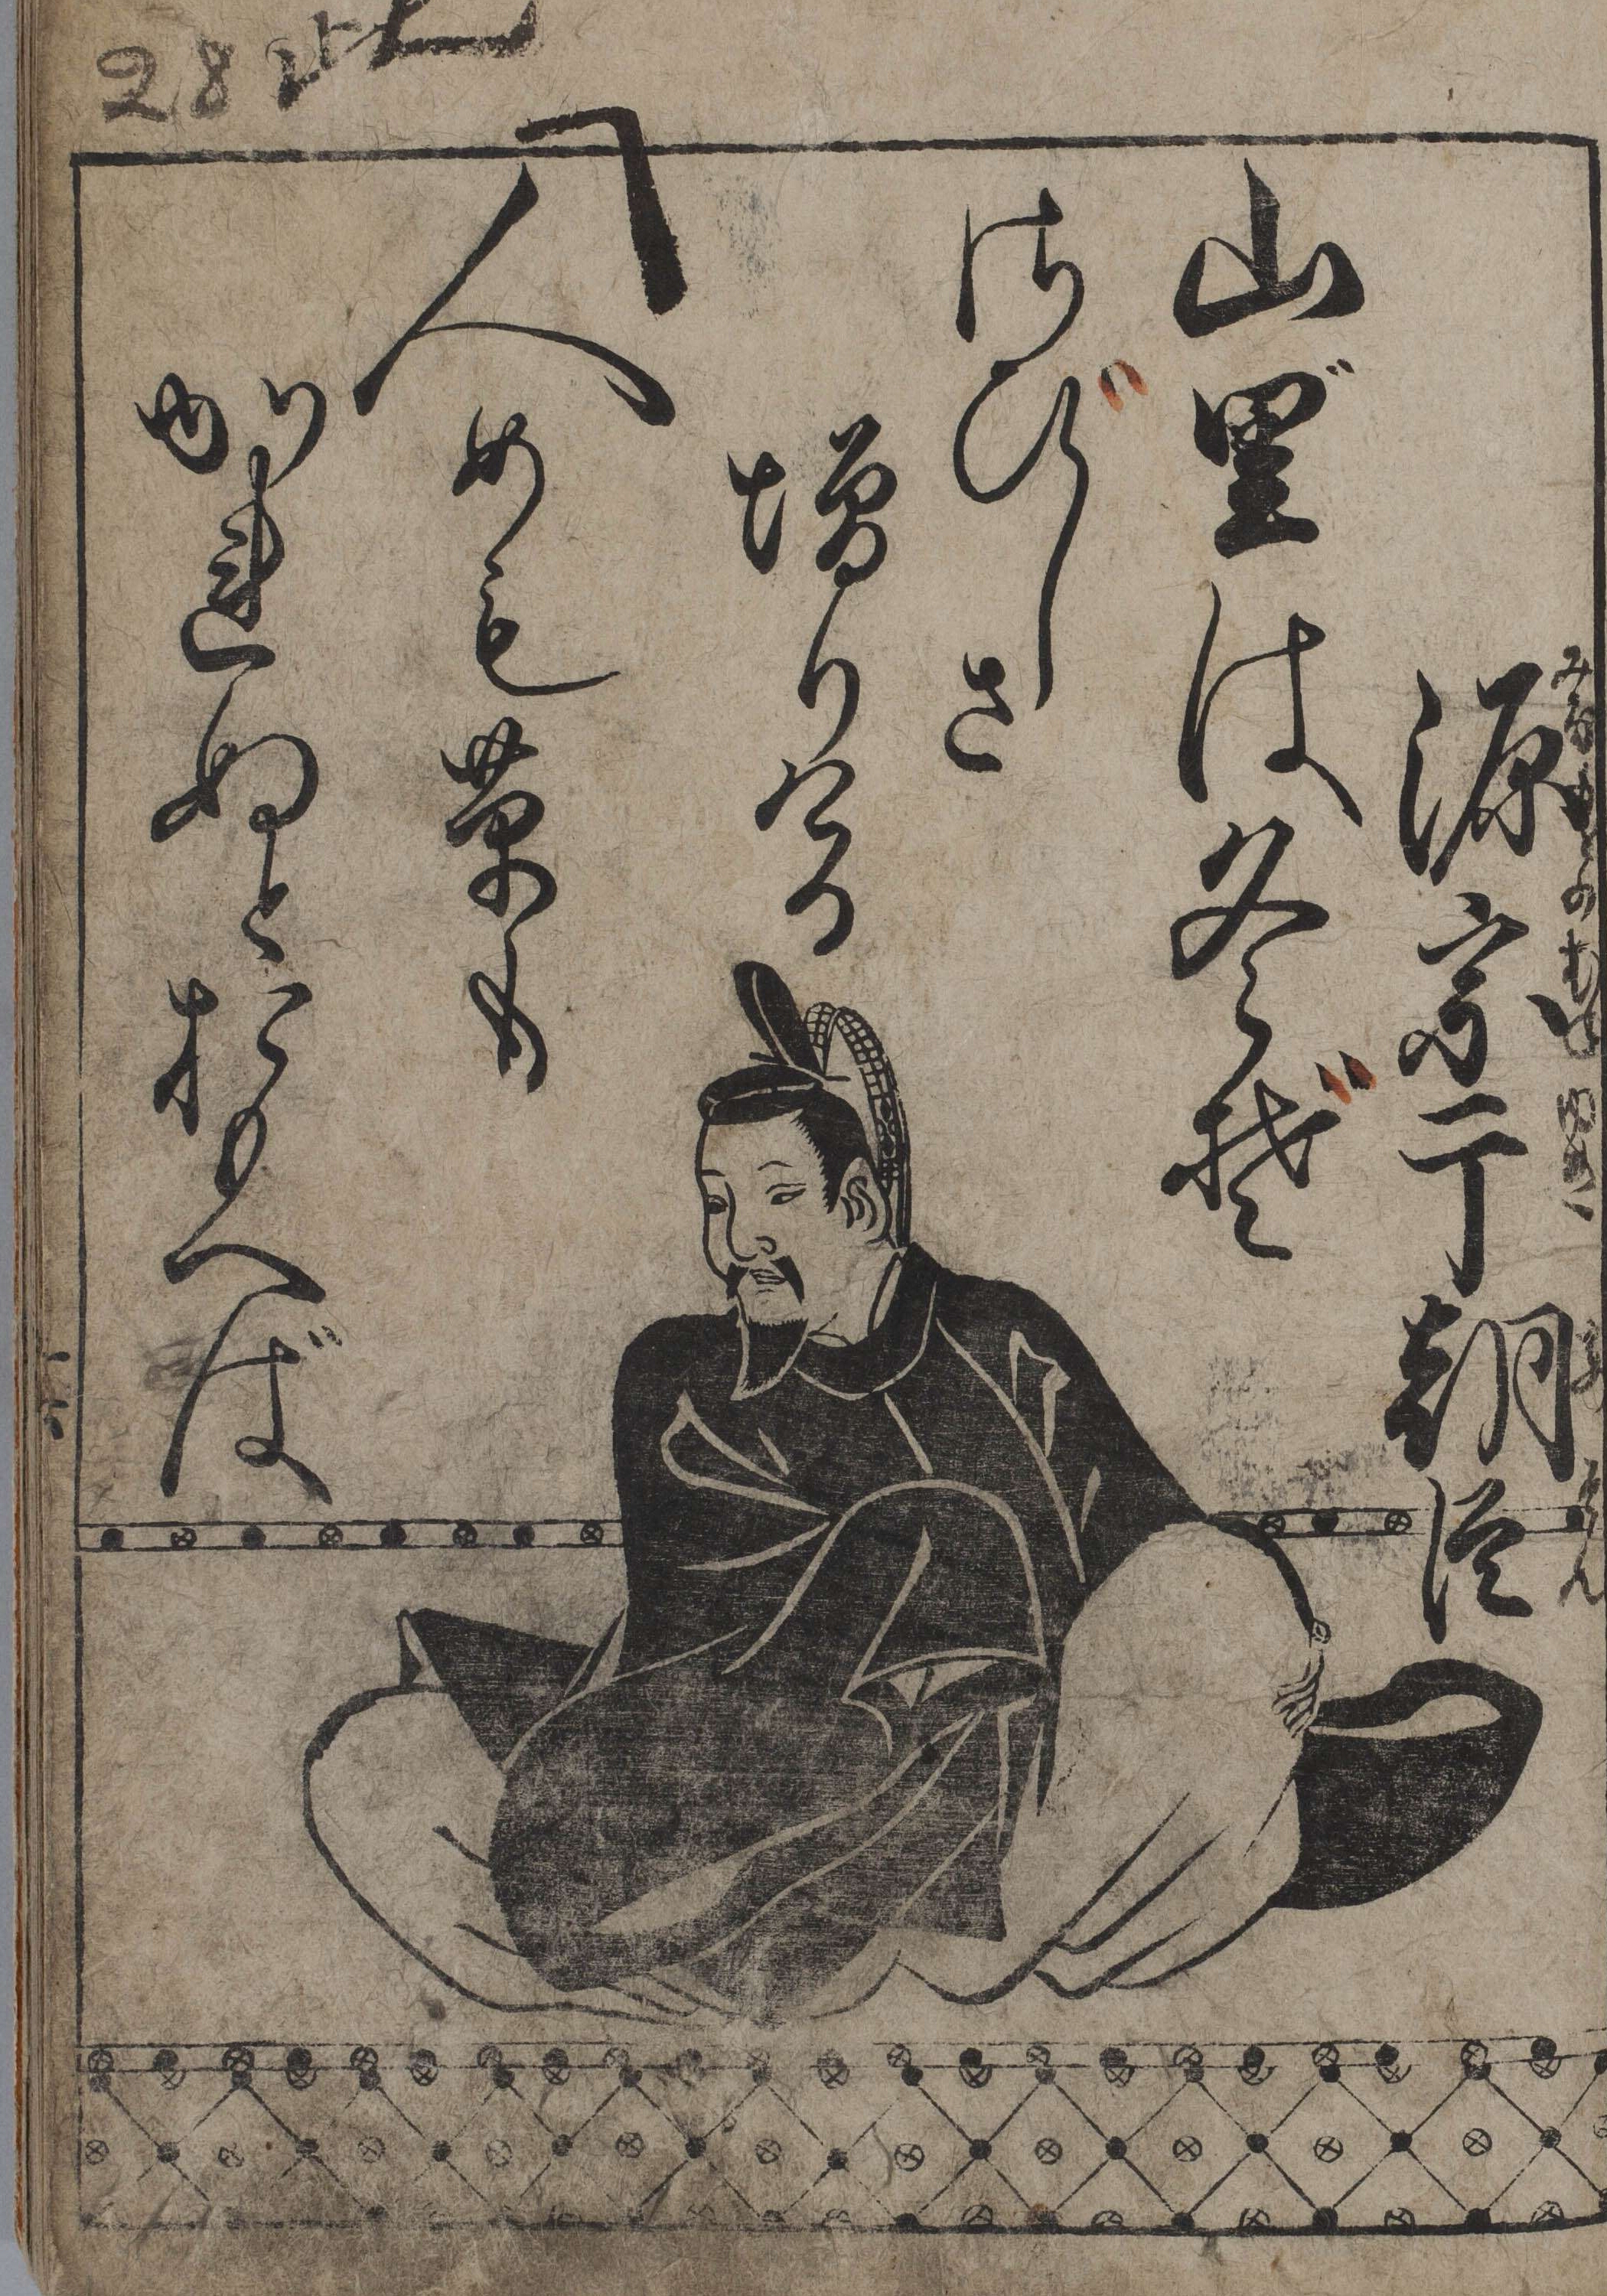 源宗于朝臣
みなもとのむねゆき
あそん
山里は冬ぞ
さびしさ
増りける
人めも草も
かれぬとおもへば
28